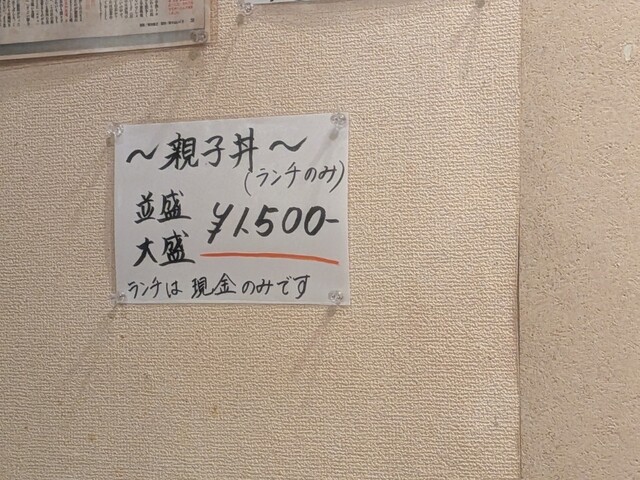 ～親子丼～
(ランチのみ)
並盛
大盛
¥1,500-
ランチは現金のみです